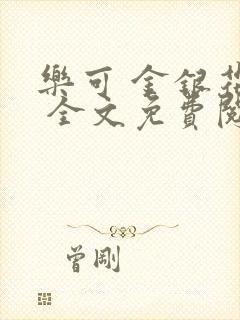 樂可 金銀花
全文免費閱
曾剛